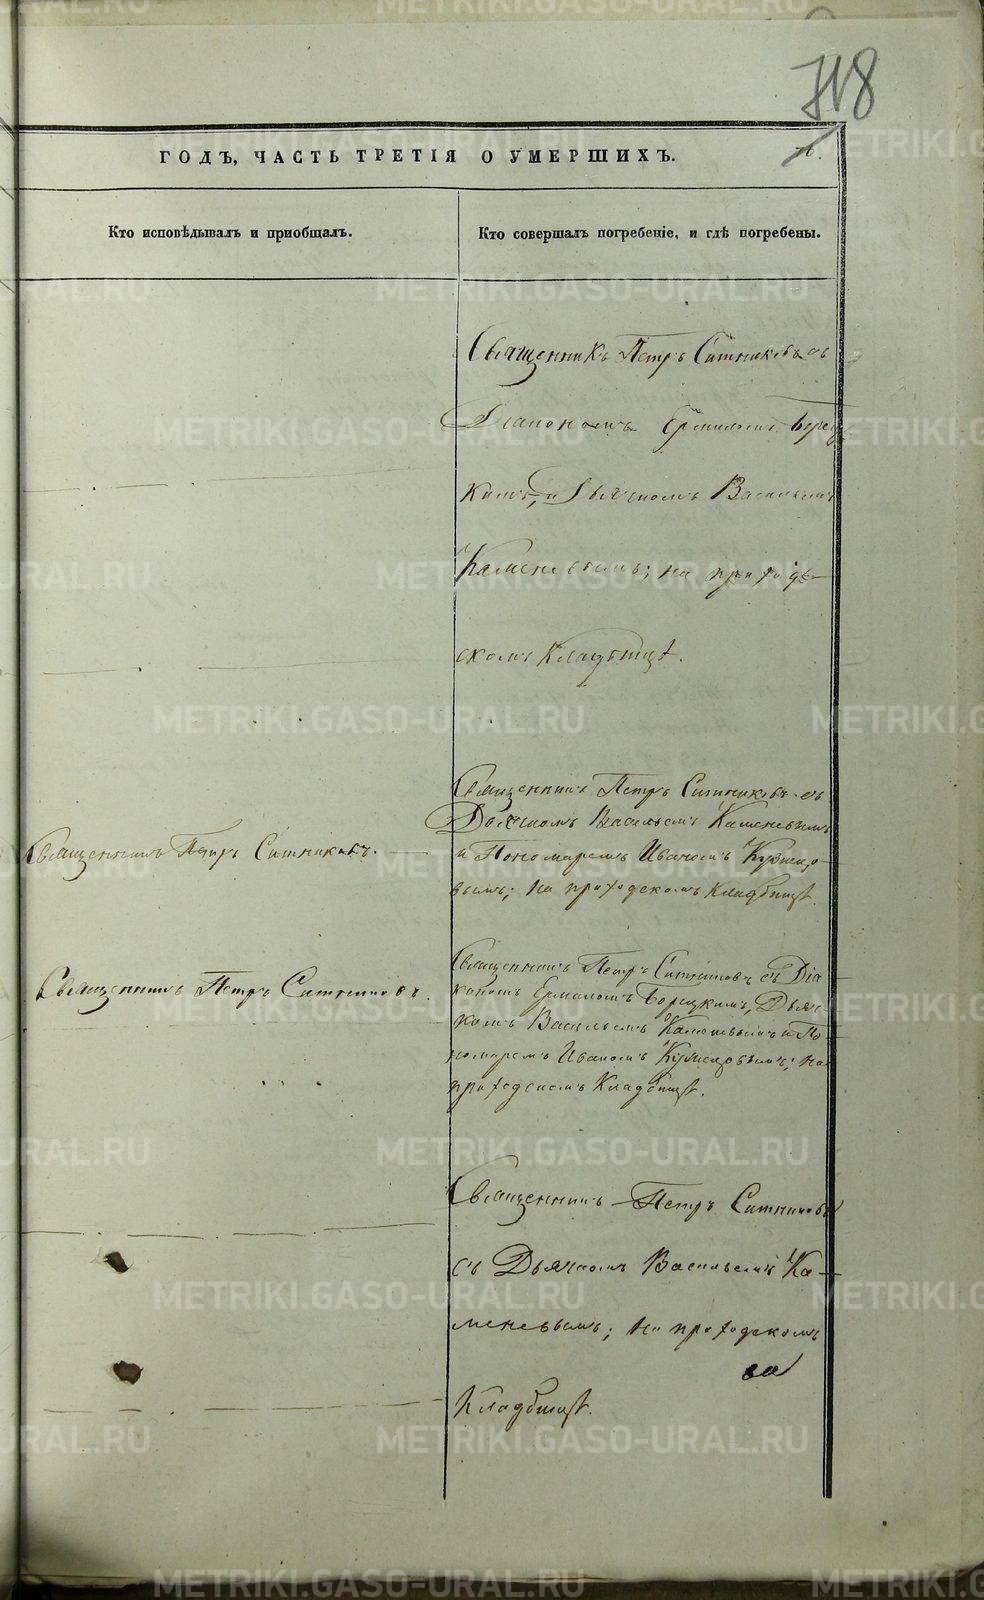 718
76.
ГОДЪ, ЧАСТЬ ТРЕТІЯ О УМЕРШИХЪ.
Кто исповѣдывалъ и пріобщалъ.
Кто совершалъ погребеніе, и гдѣ погребены.
Священникъ Петръ Ситниковъ съ
Діакономъ Ермиломъ Борец
кимъ, и Дьячкомъ Васильемъ
Каменевымъ; на приход-
скомъ Кладбищѣ.
Священникъ Петръ Ситниковъ.
Священникъ Петръ Ситниковъ съ
Дьячкомъ Васильемъ Каменевымъ
и Пономаремъ Иваномъ Кузнецо-
вымъ; на приходскомъ Кладбищѣ.
Священникъ Петръ Ситниковъ.
Священникъ Петръ Ситниковъ съ Діа-
кономъ Ермиломъ Борецкимъ, Дьяч-
комъ Васильемъ Каменевымъ и По-
номаремъ Иваномъ Кузнецовымъ; на
приходскомъ Кладбищѣ.
Священникъ Петръ Ситниковъ
съ Дьячкомъ Васильемъ Ка-
меневымъ; на приходскомъ
Кладбищѣ.
METRIKI.GASO-URAL.RU